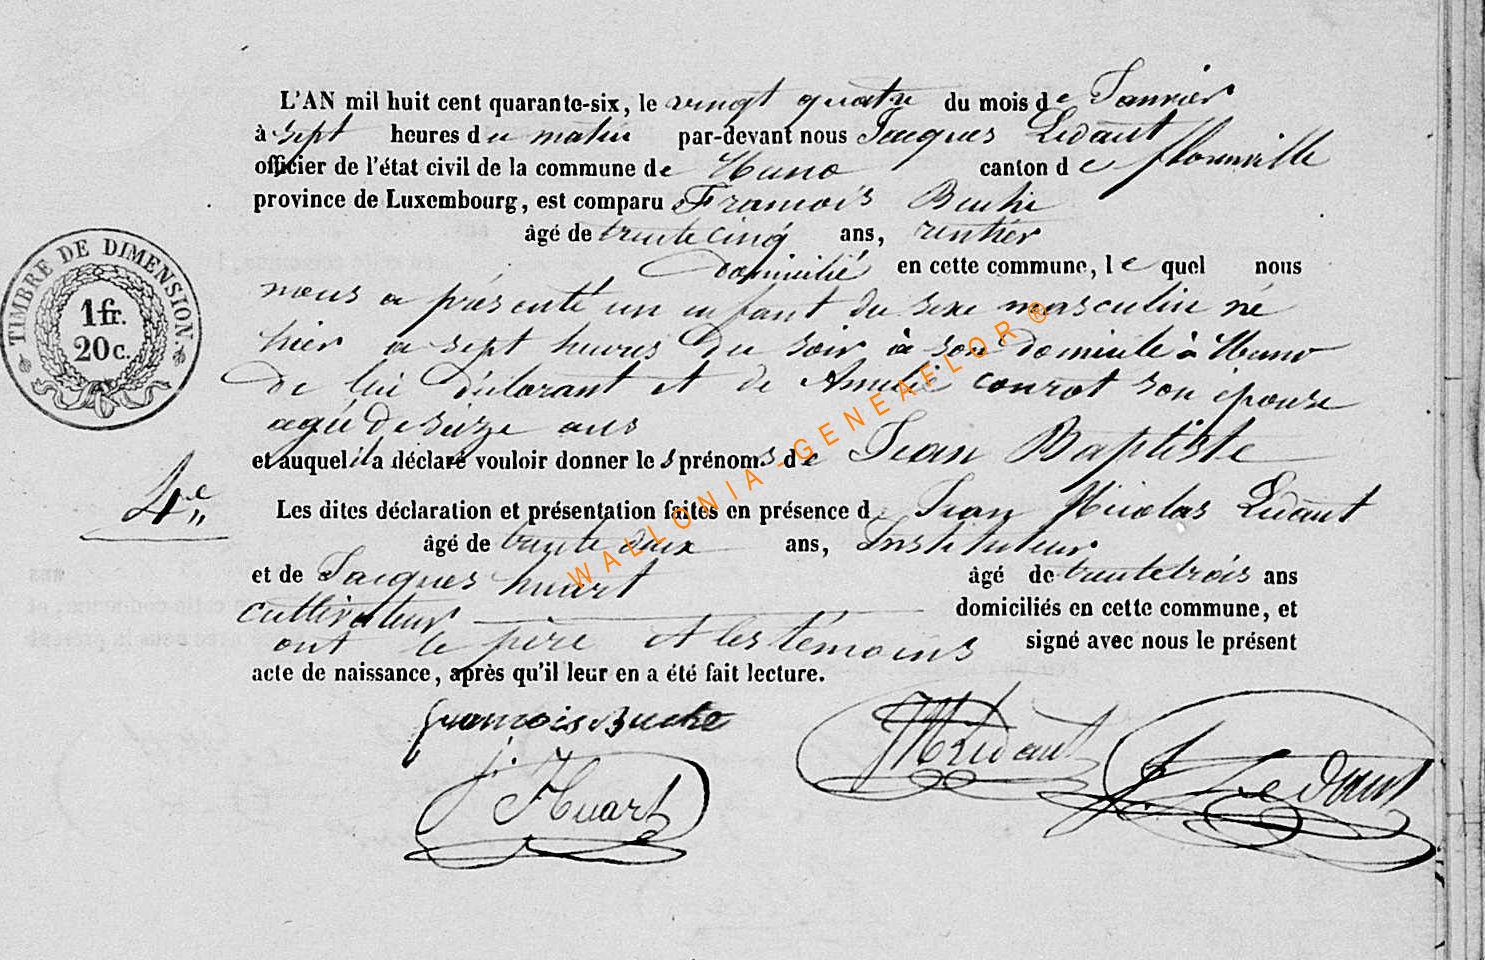 L'AN mil huit cent quarante-six, le vingt quatre du mois de Janvier
à sept heures du matin par-devant nous Jacques Ledant
officier de l'état civil de la commune de Muno canton de florenville
province de Luxembourg, est comparu François Buche
âgé de trente cinq ans, rentier
domicilié en cette commune, le quel nous
nous a présenté un enfant du sexe masculin né
hier a sept heures du soir à son domicile à Muno
de lui déclarant et de Amelie conrot son épouse
agée de seize ans
et auquel il a déclaré vouloir donner les prénoms de Jean Baptiste
4e
Les dites déclaration et présentation faites en présence d Jean Nicolas Ledant
âgé de trente deux ans, Instituteur
et de Jacques huart âgé de trente trois ans
cultivateur domiciliés en cette commune, et
ont le père et les témoins signé avec nous le présent
acte de naissance, après qu'il leur en a été fait lecture.
françois Buche
J. Huart
Ledant
J. Ledant
TIMBRE DE DIMENSION.
1 fr.
20 c.
WALLONIA-GENEAFLOR ®